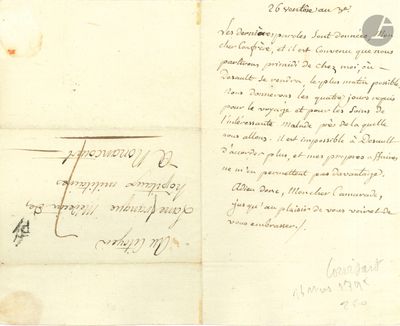 26 ventôse an 3e
Les dernières paroles sont données, Mon
cher Confrère, et il est convenu que nous
partirons primidi de chez moi, où
Desault se rendra le plus matin possible.
nous donnerons les quatre jours requis
pour le voyage et pour les soins de
l'intéressante Malade près de laquelle
nous allons. il est impossible à Desault
d'accorder plus, et mes propres affaires
ne m'en permettent pas davantage.
Adieu donc, Mon cher Camarade,
jusqu'au plaisir de vous voir et de
vous embrasser.
Corvisart
16 mars 1795
250
Au Citoyen
Lanefranque Médecin des
hôpitaux militaires
A Nonancourt